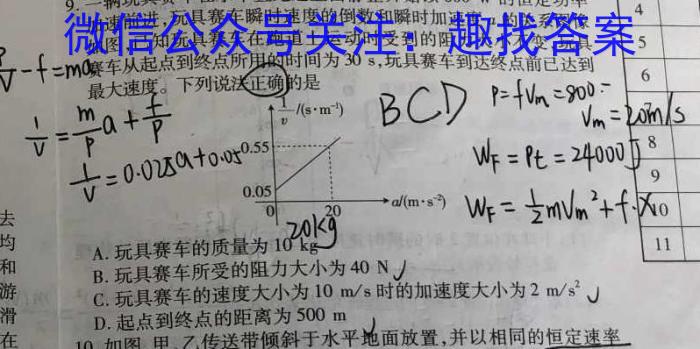 微信公众号关注：趣找答案
赛车从起点到终点所用的时间为 30 s,玩具赛车到达终点前已达到
最大速度。下列说法正确的是
-f=ma
1/v = m/P a + f/P
1/v = 0.025a+0.05
1/v /(s·m⁻¹)
0.55
0.05
0
20
a/(m·s⁻²)
BCD
P=fVm=800
Vm=20m/s
WF=Pt=24000J
WF=1/2 mVm²+f·X
20kg
A. 玩具赛车的质量为 10 kg
B. 玩具赛车所受的阻力大小为 40 N
C. 玩具赛车的速度大小为 10 m/s 时的加速度大小为 2 m/s²
D. 起点到终点的距离为 500 m
10. 如图,甲、乙传送带倾斜于水平地面放置,并以相同的恒定速率
去
均
和
游
滑
在
4
5
6
8
9
10
11